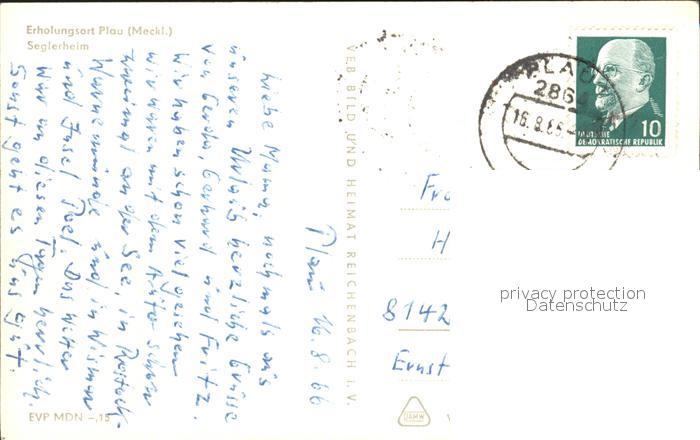 Erholungsort Plau (Meckl.)
Seglerheim
Plau 16.8.66
Liebe Mama, nochmals aus
unserem Urlaub herzliche Grüße
von Gerda, Gerhard und Fritz.
Wir haben schon viel gesehen
wir waren mit dem Auto schon
zweimal an der See, in Rostock-
Warnemünde und in Wismar
und Insel Poel. Das Wetter
war an diesen Tagen herrlich.
Sonst geht es uns gut.
EVP MDN –,15
VEB BILD UND HEIMAT REICHENBACH I. V.
PLAU
286
16.8.66
10
DEUTSCHE
DEMOKRATISCHE REPUBLIK
Fra
H
8142
Ernst
privacy protection
Datenschutz